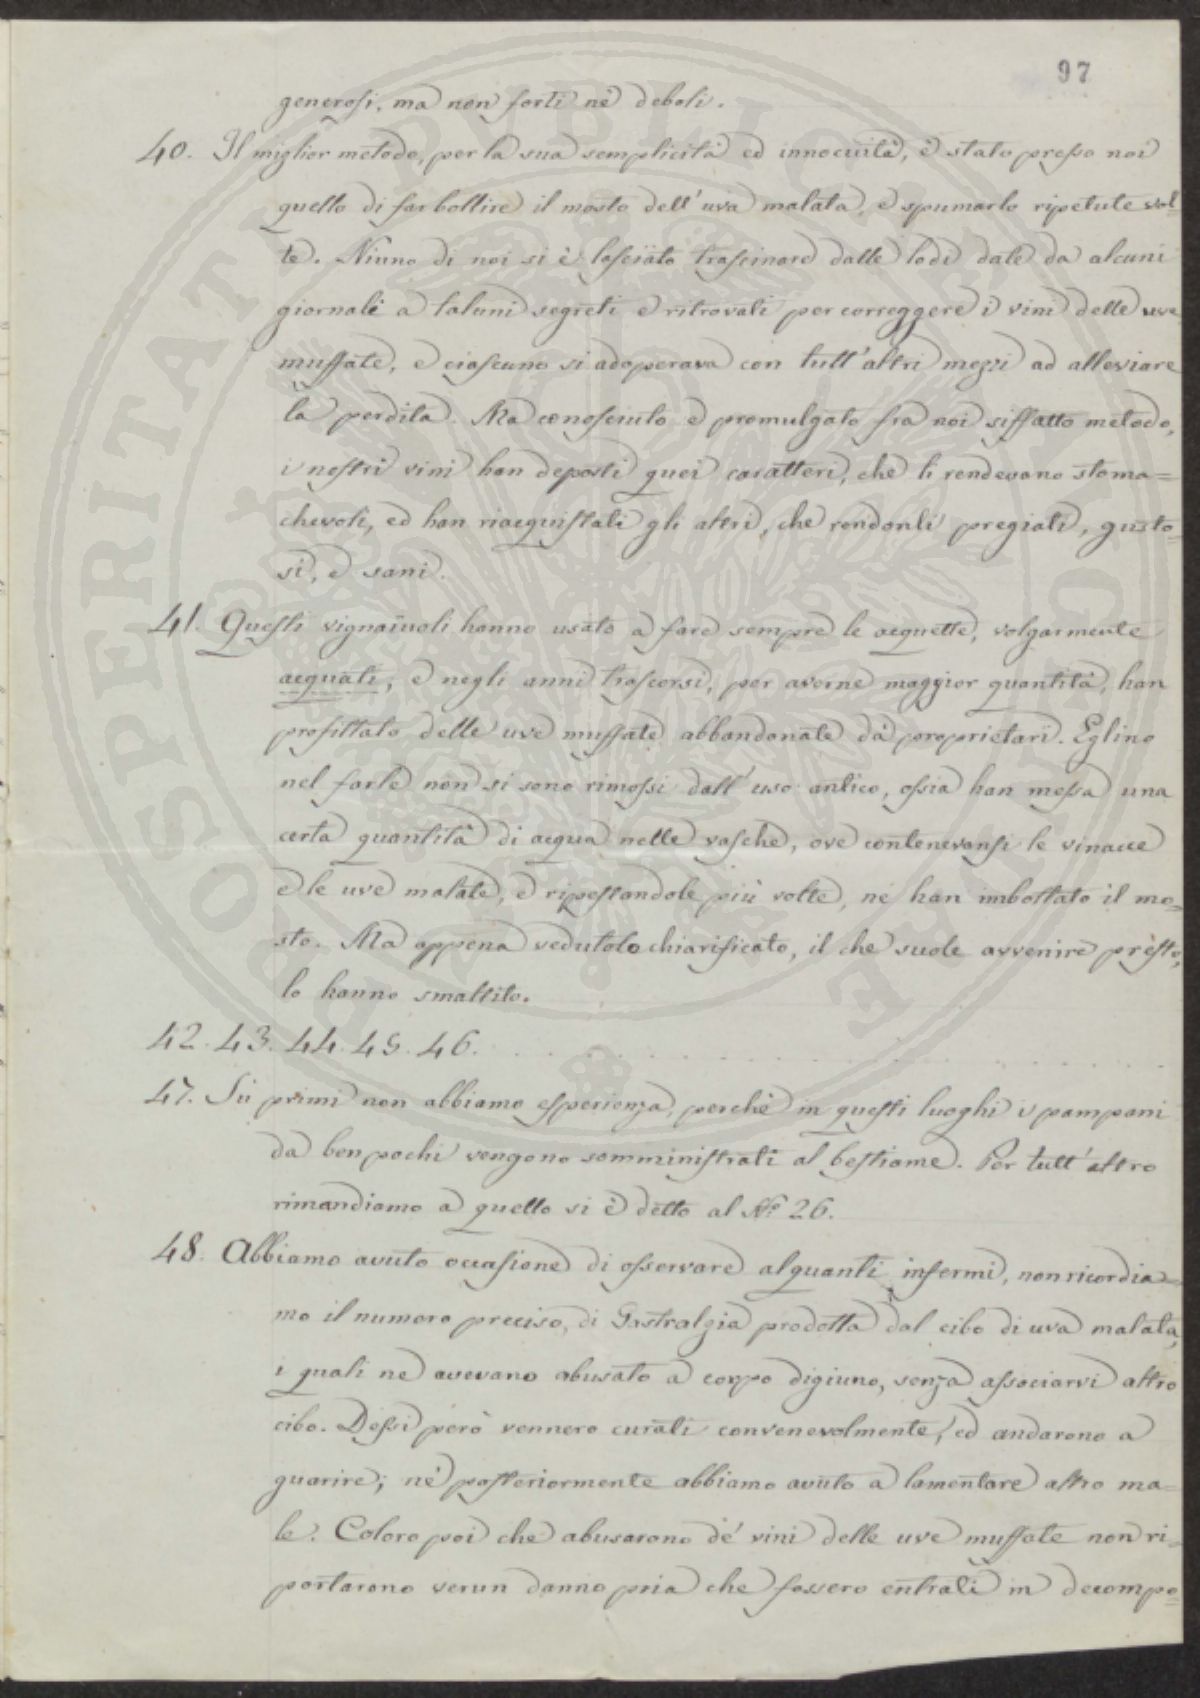 97
generosi, ma non forti nè deboli.
40. Il miglior metodo, per la sua semplicità ed innocuità, è stato presso noi
quello di far bollire il mosto dell'uva malata, e spumarlo ripetute vol-
te. Niuno di noi si è lasciato trascinare dalle lodi date da alcuni
giornali a taluni segreti e ritrovati per correggere i vini delle uve
muffate, e ciascuno si adoperava con tutt'altri mezzi ad alleviare
la perdita. Ma conosciuto e promulgato fra noi siffatto metodo,
i nostri vini han deposti quei caratteri, che li rendevano stoma=
chevoli, ed han riacquistati gli altri, che rendonli pregiati, gusto-
si, e sani.
41. Questi vignaiuoli hanno usato a fare sempre le acquette, volgarmente
acquati; e negli anni trascorsi, per averne maggior quantità, han
profittato delle uve muffate abbandonate da' proprietari. Eglino
nel farle non si sono rimossi dall'uso antico, ossia han messa una
certa quantità di acqua nelle vasche, ove contenevansi le vinacce
e le uve malate, e ripestandole più volte, ne han imbottato il mo-
sto. Ma appena vedutolo chiarificato, il che suole avvenire presto,
lo hanno smaltito.
42. 43. 44. 45. 46. . . . . . . . . . . . . . . .
47. Su' primi non abbiamo esperienza, perchè in questi luoghi i pampani
da ben pochi vengono somministrati al bestiame. Per tutt'altro
rimandiamo a quello si è detto al N.° 26.
48. Abbiamo avuto occasione di osservare alquanti infermi, non ricordia=
mo il numero preciso, di Gastralgia prodotta dal cibo di uva malata,
i quali ne avevano abusato a corpo digiuno, senza associarvi altro
cibo. Dessi però vennero curati convenevolmente, ed andarono a
guarire; nè posteriormente abbiamo avuto a lamentare altro ma=
le. Coloro poi che abusarono de' vini delle uve muffate non ri=
portarono verun danno pria che fossero entrati in decompo=
PROSPERITATI PVBLICAE AVGENDAE